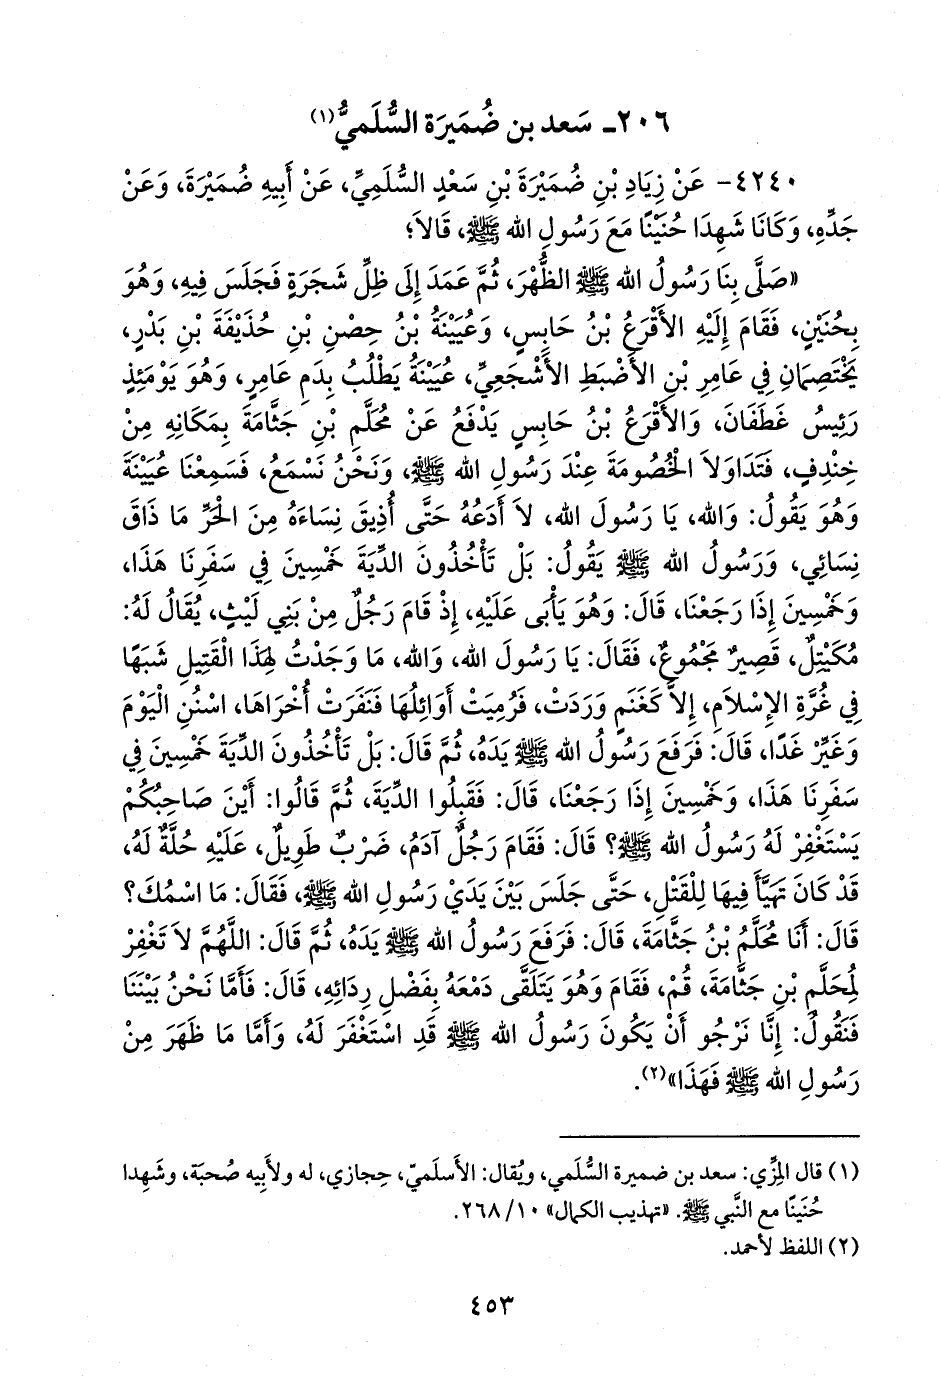 ٢٠٦- سَعد بن ضُمَيرَة السُّلَميُّ(١)
٤٢٤٠- عَنْ زِيَادِ بْنِ ضُمَيْرَةَ بْنِ سَعْدٍ السُّلَمِيِّ، عَنْ أَبِيهِ ضُمَيْرَةَ، وَعَنْ
جَدِّهِ، وَكَانَا شَهِدَا حُنَيْنًا مَعَ رَسُولِ الله ﷺ، قَالاَ؛
«صَلَّى بِنَا رَسُولُ الله ﷺ الظُّهْرَ، ثُمَّ عَمَدَ إِلَى ظِلِّ شَجَرَةٍ فَجَلَسَ فِيهِ، وَهُوَ
بِحُنَيْنٍ، فَقَامَ إِلَيْهِ الأَقْرَعُ بْنُ حَابِسٍ، وَعُيَيْنَةُ بْنُ حِصْنِ بْنِ حُذَيْفَةَ بْنِ بَدْرٍ،
يَخْتَصِمَانِ فِي عَامِرِ بْنِ الأَضْبَطِ الأَشْجَعِيِّ، عُيَيْنَةُ يَطْلُبُ بِدَمِ عَامِرٍ، وَهُوَ يَوْمَئِذٍ
رَئِيسُ غَطَفَانَ، وَالأَقْرَعُ بْنُ حَابِسٍ يَدْفَعُ عَنْ مُحَلَّمِ بْنِ جَثَّامَةَ بِمَكَانِهِ مِنْ
خِنْدِفٍ، فَتَدَاوَلاَ الْخُصُومَةَ عِنْدَ رَسُولِ الله ﷺ، وَنَحْنُ نَسْمَعُ، فَسَمِعْنَا عُيَيْنَةَ
وَهُوَ يَقُولُ: وَالله، يَا رَسُولَ الله، لاَ أَدَعُهُ حَتَّى أُذِيقَ نِسَاءَهُ مِنَ الْحَرِّ مَا ذَاقَ
نِسَائِي، وَرَسُولُ الله ﷺ يَقُولُ: بَلْ تَأْخُذُونَ الدِّيَةَ خَمْسِينَ فِي سَفَرِنَا هَذَا،
وَخَمْسِينَ إِذَا رَجَعْنَا، قَالَ: وَهُوَ يَأْبَى عَلَيْهِ، إِذْ قَامَ رَجُلٌ مِنْ بَنِي لَيْثٍ، يُقَالُ لَهُ:
مُكَيْتِلٌ، قَصِيرٌ مَجْمُوعٌ، فَقَالَ: يَا رَسُولَ الله، وَالله، مَا وَجَدْتُ لِهَذَا الْقَتِيلِ شَبَهًا
فِي غُرَّةِ الإِسْلاَمِ، إِلاَّ كَغَنَمٍ وَرَدَتْ، فَرُمِيَتْ أَوَائِلُهَا فَنَفَرَتْ أُخْرَاهَا، اسْنُنِ الْيَوْمَ
وَغَيِّرْ غَدًا، قَالَ: فَرَفَعَ رَسُولُ الله ﷺ يَدَهُ، ثُمَّ قَالَ: بَلْ تَأْخُذُونَ الدِّيَةَ خَمْسِينَ فِي
سَفَرِنَا هَذَا، وَخَمْسِينَ إِذَا رَجَعْنَا، قَالَ: فَقَبِلُوا الدِّيَةَ، ثُمَّ قَالُوا: أَيْنَ صَاحِبُكُمْ
يَسْتَغْفِرْ لَهُ رَسُولُ الله ﷺ؟ قَالَ: فَقَامَ رَجُلٌ آدَمُ، ضَرْبٌ طَوِيلٌ، عَلَيْهِ حُلَّةٌ لَهُ،
قَدْ كَانَ تَهَيَّأَ فِيهَا لِلْقَتْلِ، حَتَّى جَلَسَ بَيْنَ يَدَيْ رَسُولِ الله ﷺ، فَقَالَ: مَا اسْمُكَ؟
قَالَ: أَنَا مُحَلَّمُ بْنُ جَثَّامَةَ، قَالَ: فَرَفَعَ رَسُولُ الله ﷺ يَدَهُ، ثُمَّ قَالَ: اللَّهُمَّ لاَ تَغْفِرْ
لِمُحَلَّمِ بْنِ جَثَّامَةَ، قُمْ، فَقَامَ وَهُوَ يَتَلَقَّى دَمْعَهُ بِفَضْلِ رِدَائِهِ، قَالَ: فَأَمَّا نَحْنُ بَيْنَنَا
فَنَقُولُ: إِنَّا نَرْجُو أَنْ يَكُونَ رَسُولُ الله ﷺ قَدِ اسْتَغْفَرَ لَهُ، وَأَمَّا مَا ظَهَرَ مِنْ
رَسُولِ الله ﷺ فَهَذَا»(٢).
(١) قال المِزِّي: سعد بن ضميرة السُّلَمي، ويُقال: الأَسلَميّ، حِجازي، له ولأَبيه صُحبَة، وشَهِدا
حُنَينًا مع النَّبي ﷺ. «تهذيب الكمال» ١٠/ ٢٦٨.
(٢) اللفظ لأحمد.
٤٥٣